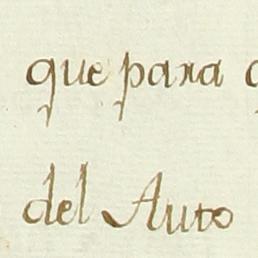 que para
del Auto